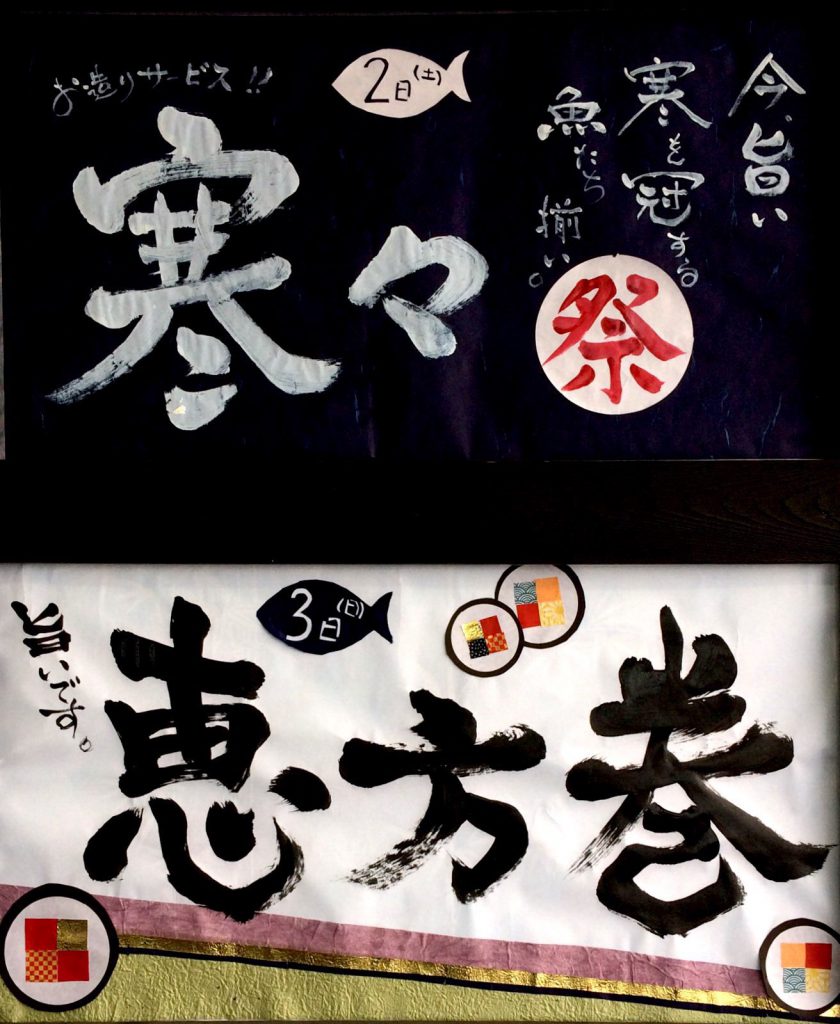 今、旨い
寒を冠する
魚たち 揃い。
祭
2日(土)
寒々
お造りサービス!!
恵方巻
3日(日)
旨いです。